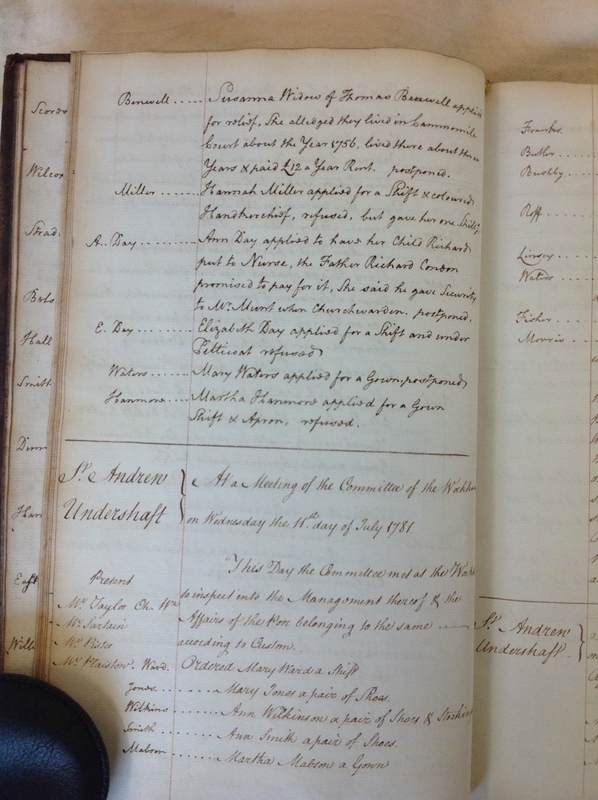 Benewell ..... Susanna Widow of Thomas Benewell applied
for relief, She alledged they lived in Cammomile
Court about the Year 1756, lived there about three
Years & paid £12 a Year Rent. postponed.
Miller ...... Hannah Miller applied for a Shift & coloured
Handkerchief, refused, but gave her one Shillg.
A. Day ......... Ann Day applied to have her Child Richard
put to Nurse, the Father Richard Condon
promised to pay for it, She said he gave Security
to Mr. Munt when Churchwarden. postponed.
E. Day ........ Elizabeth Day applied for a Shift and under
Petticoat refused
Waters ...... Mary Waters applied for a Gown, postponed
Hanmore .... Martha Hanmore applied for a Gown
Shift & Apron, refused.
St. Andrew
Undershaft
At a Meeting of the Committee of the Workho
on Wednesday the 11th. day of July 1781.
Present
Mr. Taylor Ch. Wn
Mr. Sartain
Mr. Plaistow
This Day the Committee met at the Work
to inspect into the Management thereof & the
Affairs of the Poor belonging to the same
according to Custom.
Ward. Ordered Mary Ward a Shift
Jones ........ Mary Jones a pair of Shoes.
Wilkins ....... Ann Wilkinson a pair of Shoes & Stockin
Smith ........ Ann Smith a pair of Shoes.
Mabson ....... Martha Mabson a Gown
Wilcox
Strad.
Hall
Smith
Dunn
East
Butler ....
Bushby ....
Roff ....
Linsey ....
Waters ....
Fisher ....
Morris ....
St. Andrew
Undershaft.